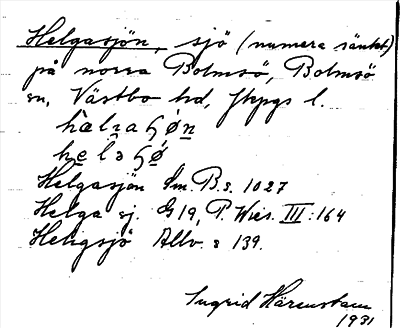 Helgasjön, sjö (numera sänkt)
på norra Bolmsö, Bolmsö
sn, Västbo hd, Jkpgs l.
Helgasjön Sm. B. s. 1027
Helga sj. G 19, P. Wies. III: 164
Heligsjö Allv. s 139.
Ingrid Härenstam
1931